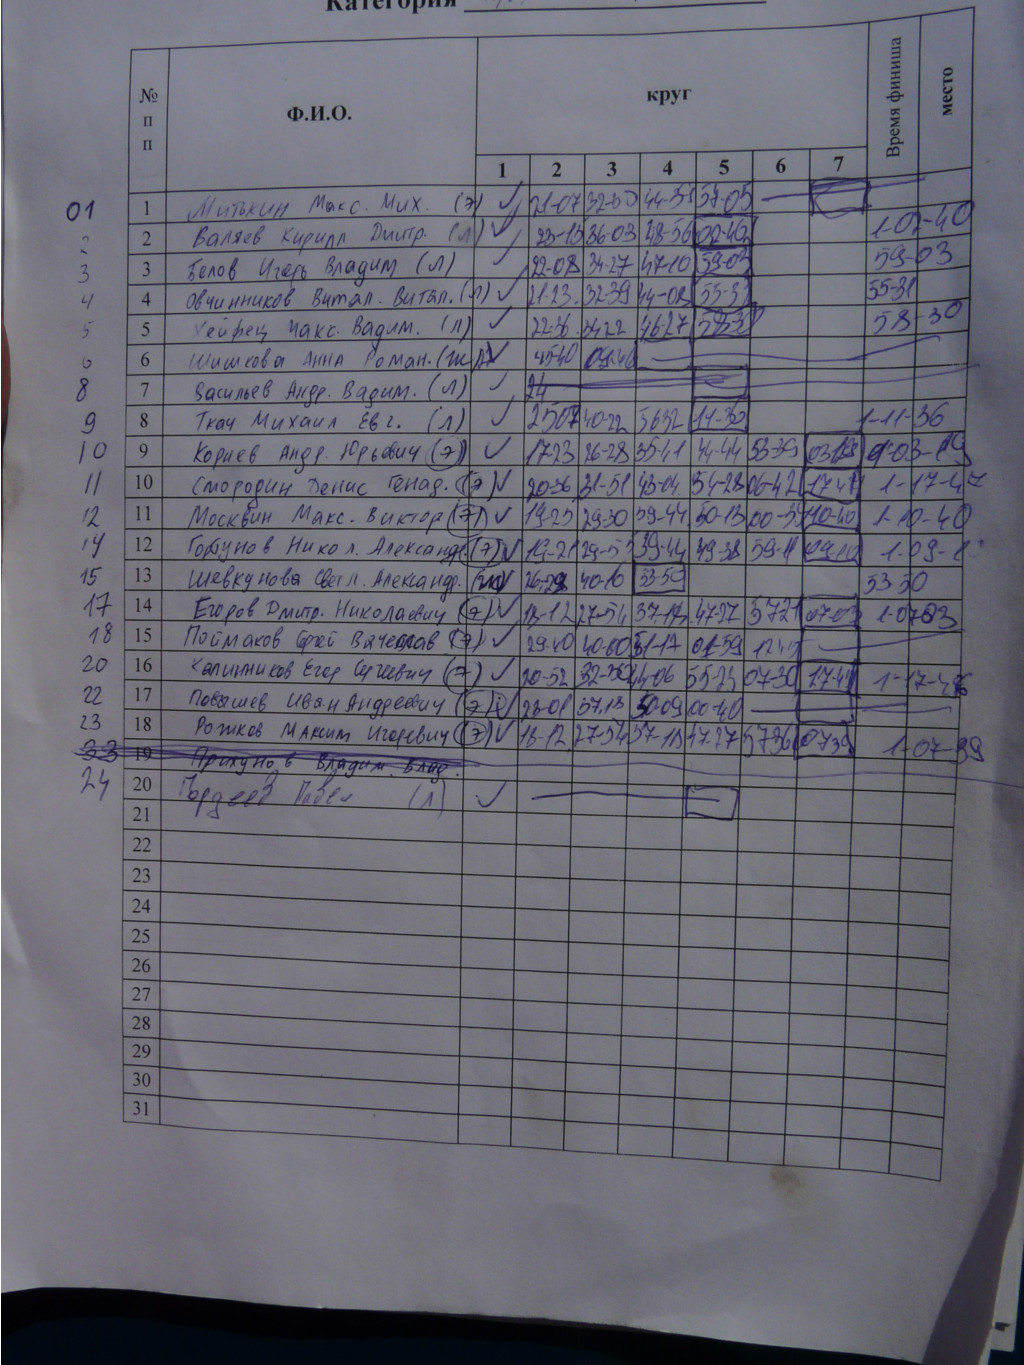 Категория
№ п п Ф.И.О. круг Время финиша место
1 2 3 4 5 6 7
01 1 Митькин Макс. Мих. (Э) ✓ 21-07 32-50 44-51 57-05
2 2 Валяев Кирилл Дмитр. (Л) ✓ 23-15 36-03 48-56 02-40 1-02-40
3 3 Белов Игорь Владим (Л) ✓ 22-08 34-27 47-10 59-03 59-03
4 4 Овчинников Витал. Витал. (Л) ✓ 21-23 32-39 44-08 55-31 55-31
5 5 Хейфец Макс. Вадим. (Л) ✓ 22-36 3422 46-27 58-30 58-30
6 6 Шишкова Анна Роман. ✓ 45-40
8 7 Васильев Андр. Вадим. (Л) ✓ 24
9 8 Ткач Михаил Евг. (Л) ✓ 2507 40-22 5632 11-36 1-11-36
10 9 Корнев Андр. Юрьевич (Э) ✓ 17-23 26-28 35-41 44-44 53-39 1-03-19
11 10 Смородин Денис Генад. (Э) ✓ 20-36 31-51 43-04 54-28 06-42 17-47 1-17-47
12 11 Москвин Макс. Виктор (Э) ✓ 19-25 29-30 39-44 50-13 10-40 1-10-40
14 12 Горбунов Никол. Александр. (Э) ✓ 19-21 29-53 39-44 49-38 59-11 1-09-
15 13 Шевкунова Светл. Александр. ✓ 40-10 53-50 53 50
17 14 Егоров Дмитр. Николаевич (Э) ✓ 18-12 27-54 37-17 47-27 5721 07-03 1-0703
18 15 Поймаков Сергей Вячеслав (Э) ✓ 29-40 40-60 51-17 01-59
20 16 Калинников Егор Сергеевич (Э) ✓ 20-52 44-06 55-23 07-30 1-17-46
22 17 Повашев Иван Андреевич (Э) ✓ 23-01 37.13 50-09 00-40
23 18 Рожков Максим Игоревич (Э) ✓ 18-12 27-54 37-18 47-27 5736 0739 1-07-39
23 19 Владим. Влад.
24 20 Гордеев Павел (Л) ✓
21
22
23
24
25
26
27
28
29
30
31